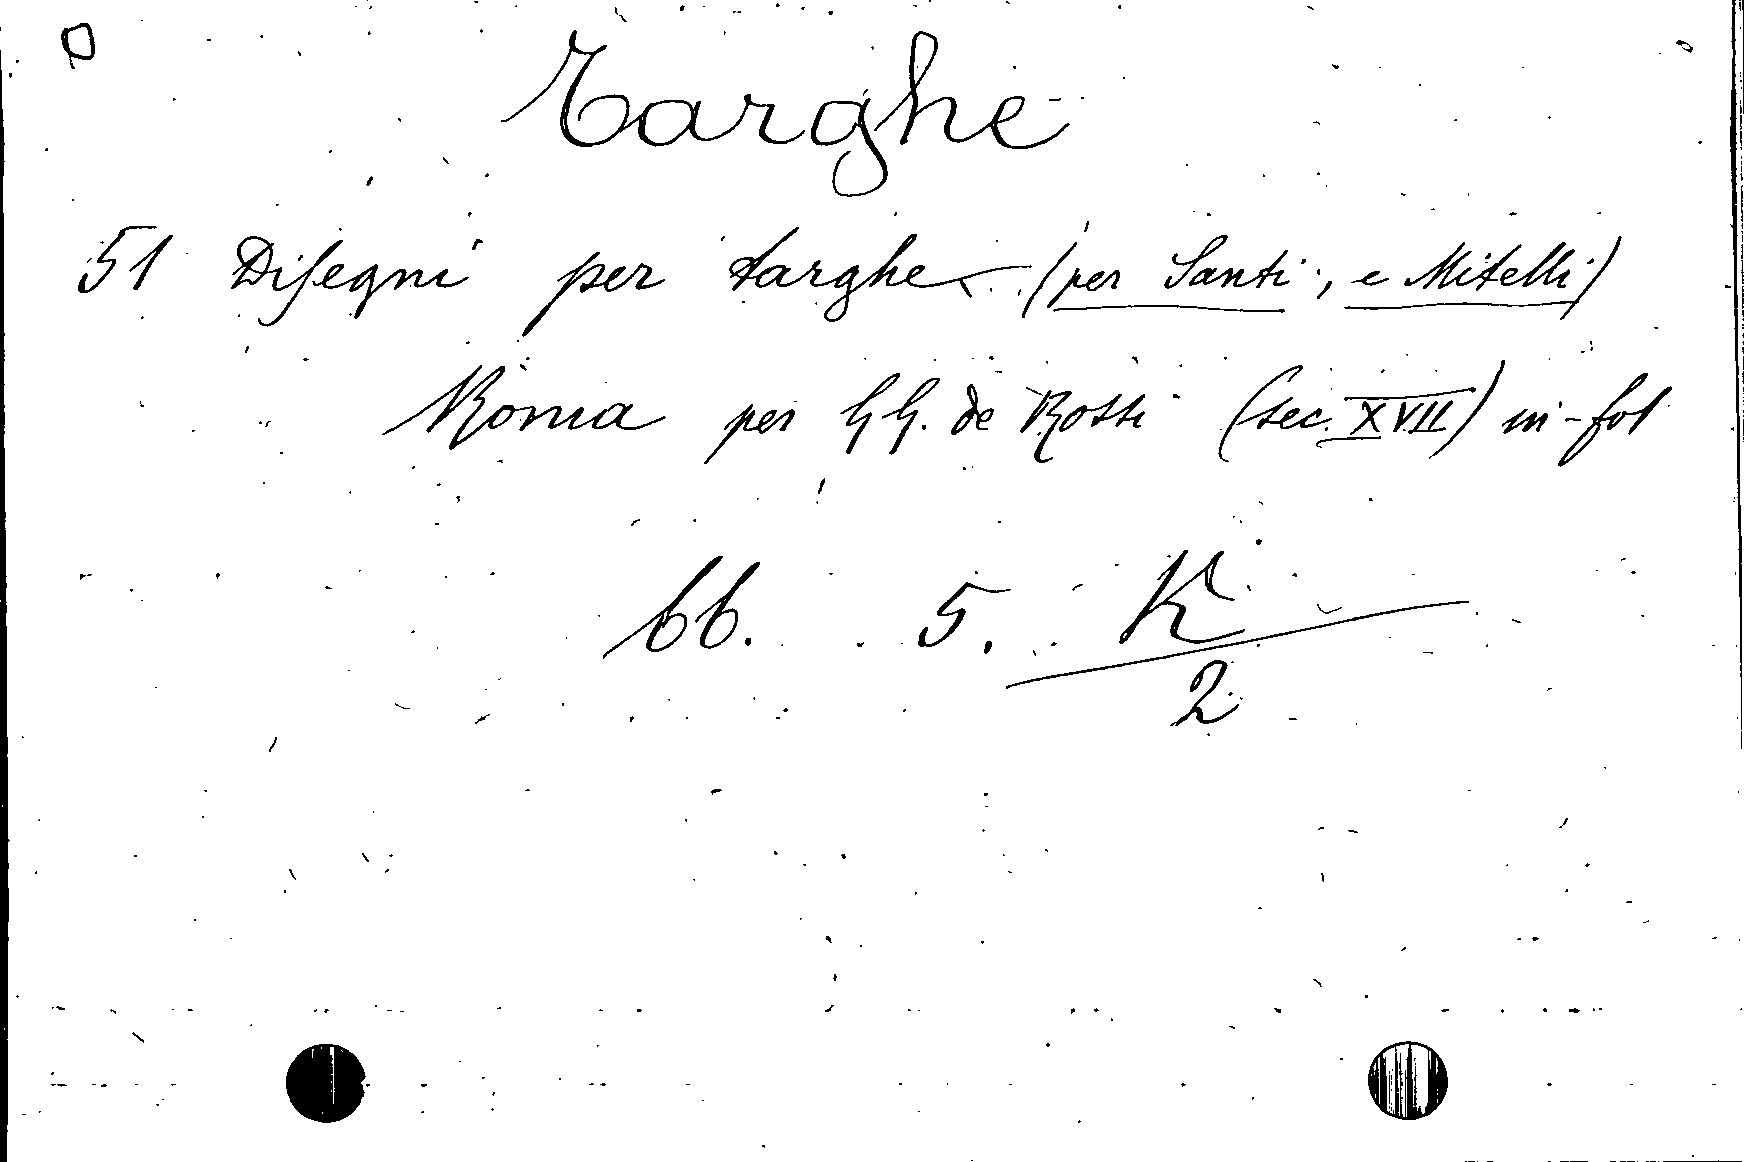 Targhe
51 Disegni per targhe (per Santi, e Mitelli)
Roma per GG. de Rossi (sec. XVII) in-fol
bb. 5. K
2